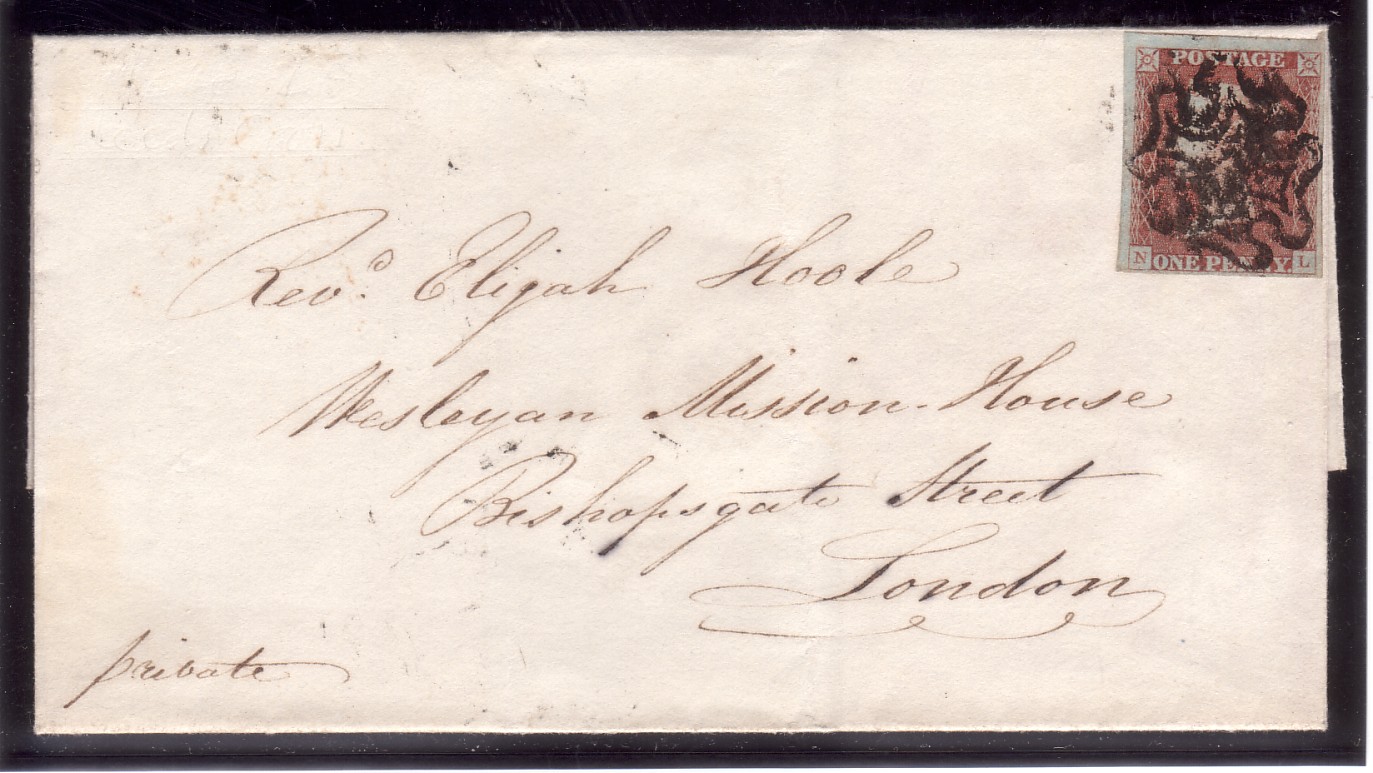 POSTAGE
N ONE PENNY. L
Revd. Elijah Hoole
Wesleyan Mission-House
Bishopsgate Street
London
private